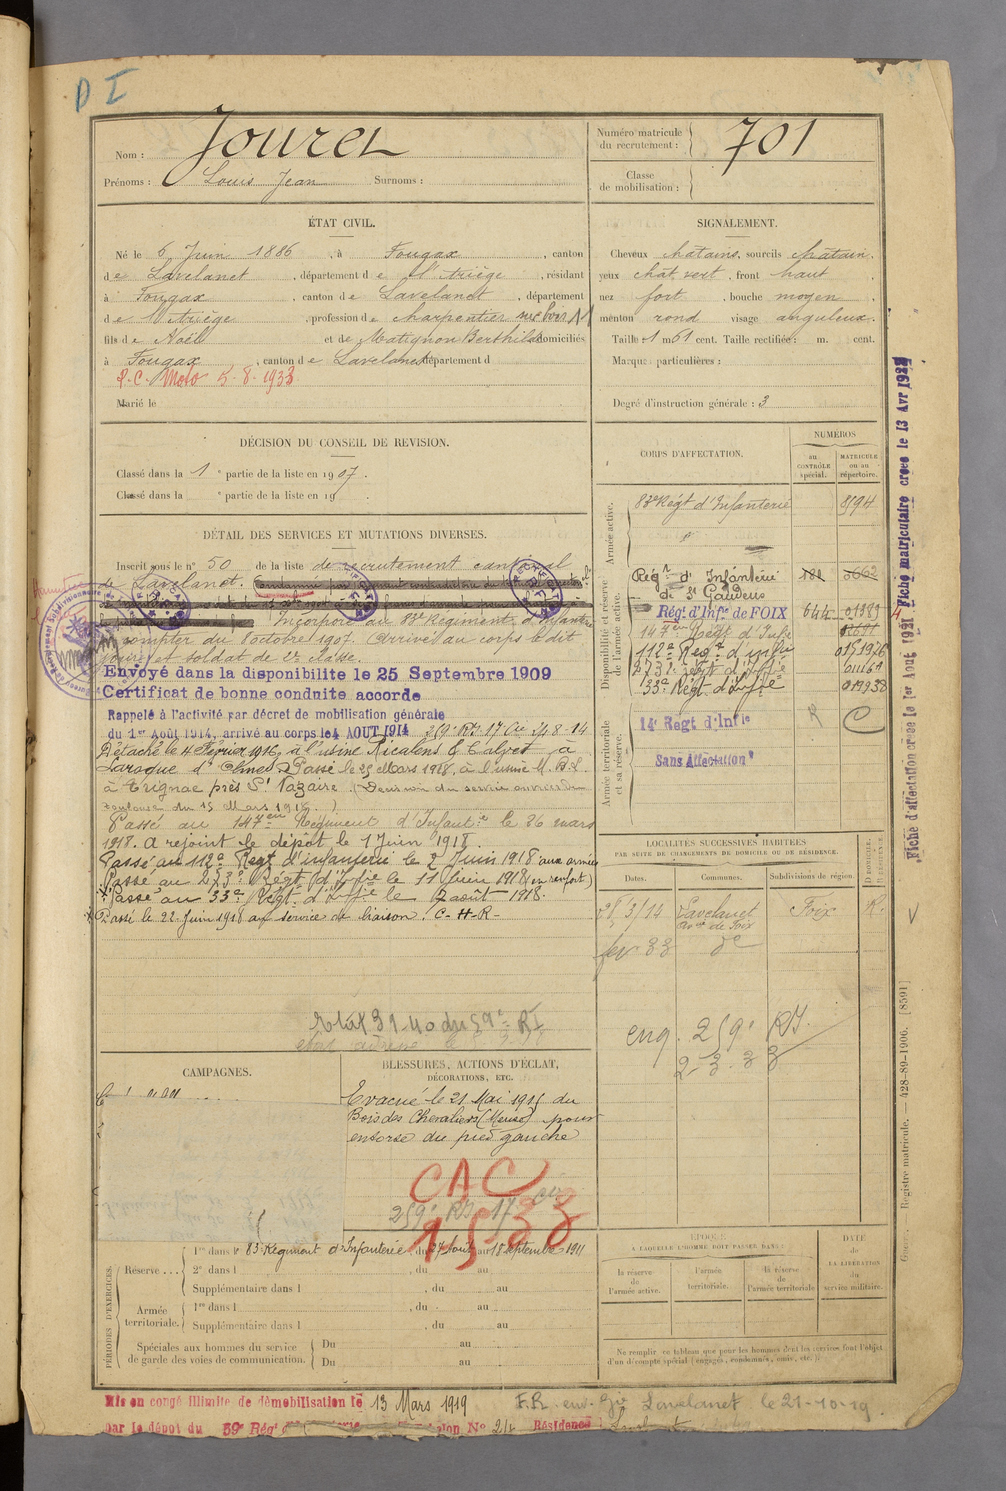 D I
Nom : Jouret
Prénoms : Louis Jean Surnoms :
Numéro matricule du recrutement : 701
Classe de mobilisation :
ÉTAT CIVIL.
Né le 6 Juin 1886, à Fougax, canton
de Lavelanet, département de l'Ariège, résidant
à Fougax, canton de Lavelanet, département
de l'Ariège, profession de charpentier
fils de Noël et de Matignon Berthilde domiciliés
à Fougax, canton de Lavelanet département d
R.C. Moto 5.8.1933
Marié le
SIGNALEMENT.
Cheveux chatains, sourcils chatain,
yeux chat. vert, front haut
nez fort, bouche moyen,
menton rond visage anguleux.
Taille : 1 m 61 cent. Taille rectifiée : m. cent.
Marques particulières :
Degré d'instruction générale : 3
DÉCISION DU CONSEIL DE REVISION.
Classé dans la 1e partie de la liste en 1907.
Classé dans la e partie de la liste en 19
DÉTAIL DES SERVICES ET MUTATIONS DIVERSES.
Inscrit sous le n° 50 de la liste de recrutement cantonal
de Lavelanet.
Incorporé au 83e Régiment d'Infanterie
à compter du 8 octobre 1907. Arrivé au corps le dit
jour et soldat de 2e classe.
Envoyé dans la disponibilite le 25 Septembre 1909
Certificat de bonne conduite accorde
Rappelé à l'activité par décret de mobilisation générale
du 1er Août 1914, arrivé au corps le 4 AOUT 1914 259e RI 17 Cie 24 8-14
Détaché le 4 Février 1916, à l'usine Ricalens & Calvet à
Laroque d'Olmes. Passé le 25 Mars 1918, à l'usine M.B.L.
à Trignac près St Nazaire. (Decision du service ouvrier de
Toulouse du 15 Mars 1918.)
Passé au 147em Régiment d'Infantie le 26 mars
1918. A rejoint le dépôt le 1 Juin 1918.
Passé au 112e Regt d'infanterie le 2 Juin 1918 aux armées
Passé au 273e Régt d'Inf.ie le 11 Juin 1918 (en renfort)
Passé au 33e Régt d'Inf.ie le 2 août 1918.
Passé le 22 Juin 1918 au service de liaison. C-H-R-
39-40 du 59e RI
CORPS D'AFFECTATION.
NUMÉROS
au CONTRÔLE spécial.
MATRICULE ou au répertoire.
Armée active.
83e Régt d'Infanterie 8194
Disponibilité et réserve de l'armée active.
Régt d'Infanterie de St Gaudens
Régt d'Infie de FOIX 644 01389
147em Régt d'Infie
112e Regt d'infie 015926
273e Régt d'Infie
33e Régt d'Infie 013938
Armée territoriale et sa réserve.
14e Regt d'Infie R C
Sans Affectation
LOCALITÉS SUCCESSIVES HABITÉES
PAR SUITE DE CHANGEMENTS DE DOMICILE OU DE RÉSIDENCE.
Dates. Communes. Subdivisions de région. D DOMICILE. R RÉSIDENCE.
28/3/14 Lavelanet Foix R.
fev 33 do
eng. 259e RI
2-3-33
CAMPAGNES.
BLESSURES, ACTIONS D'ÉCLAT,
DÉCORATIONS, ETC.
Evacué le 21 Mai 1915 du
Bois des Chevaliers (Meuse) pour
entorse du pied gauche
CAC
259e RI 17 Cie
1.5.33
PÉRIODES D'EXERCICES.
Réserve ...
1re dans le 83 Régiment d'Infanterie, du 27 Août au 18 septembre 1911
2e dans l , du au
Supplémentaire dans l , du au
Armée territoriale.
1re dans l , du au
Supplémentaire dans l , du au
Spéciales aux hommes du service
de garde des voies de communication.
Du au
Du au
ÉPOQUE
À LAQUELLE L'HOMME DOIT PASSER DANS :
la réserve de l'armée active.
l'armée territoriale.
la réserve de l'armée territoriale
DATE de LA LIBÉRATION du service militaire.
Ne remplir ce tableau que pour les hommes dont les services font l'objet
d'un décompte spécial (engagés, condamnés, omis, etc.).
Mis en congé illimite de démobilisation le 13 Mars 1919
F.R. env. Gie Lavelanet le 21-10-19
par le dépot du 59e Régt Résidence :
Fiche d'affectation creee le 1er Aout 1921 Fiche matriculaire creee le 13 Avr 1922
Registre matricule. — 428-89-1906. [8591]